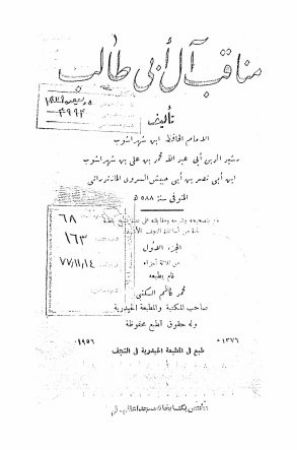 مناقب آل أبي طالب
تأليف
الامام الحافظ ابن شهراشوب
مشير الدين أبي عبد الله محمد بن علي بن شهراشوب
ابن أبي نصر بن أبي حبيش السروي المازندراني
المتوفى سنة ٥٨٨ هـ
قام بتصحيحه وشرحه ومقابلته على
لجنة من أساتذة النجف الأشرف
٦٨
١٦٣
٧٧/١١/١٤
الجزء الاول
من ثلاثة أجزاء
قام بطبعه
محمد كاظم الكتبي
صاحب المكتبة والمطبعة الحيدرية
وله حقوق الطبع محفوظة
١٣٧٦ ١٩٥٦
طبع في المطبعة الحيدرية في النجف